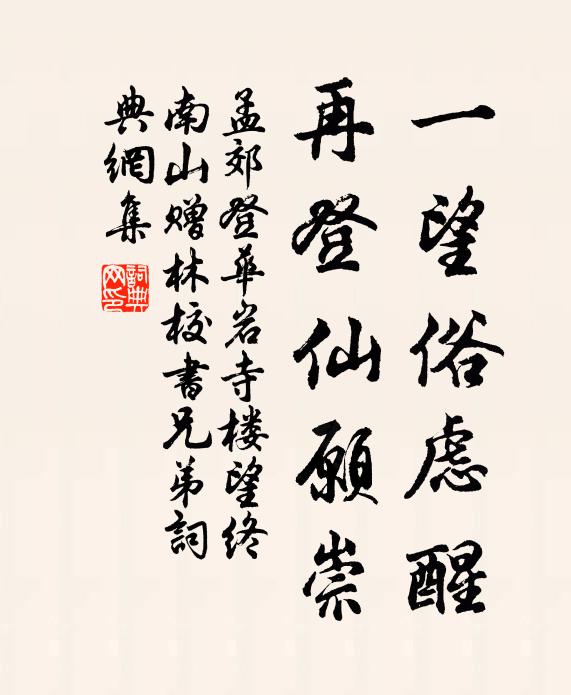 一望俗虑醒
再登仙願崇
孟郊登華岩寺楼望终
南山赠林校書兄弟詞
典網集
詞典
网印